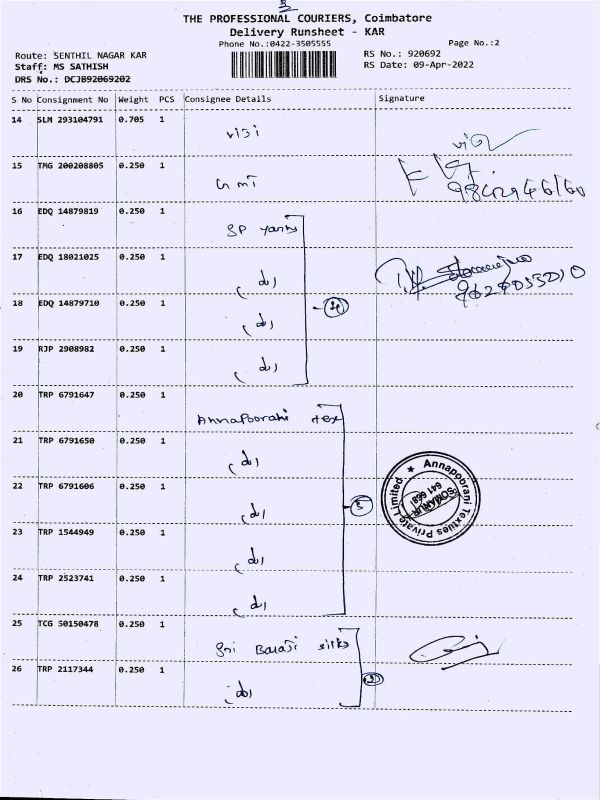 3
THE PROFESSIONAL COURIERS, Coimbatore
Delivery Runsheet - KAR
Phone No.:0422-3505555 Page No.:2
Route: SENTHIL NAGAR KAR RS No.: 920692
Staff: MS SATHISH RS Date: 09-Apr-2022
DRS No.: DCJB92069202
S No Consignment No Weight PCS Consignee Details Signature
14 SLM 293104791 0.705 1
15 TMG 200208805 0.250 1
16 EDQ 14879819 0.250 1 SP yarns
17 EDQ 18021025 0.250 1
18 EDQ 14879710 0.250 1 4
19 RJP 2908982 0.250 1
20 TRP 6791647 0.250 1 Annapoorani tex
21 TRP 6791650 0.250 1
22 TRP 6791606 0.250 1 5
Annapoorani Textiles Private Limited
SOMANUR
641 668
23 TRP 1544949 0.250 1
24 TRP 2523741 0.250 1
25 TCG 50150478 0.250 1 Sri Balaji silks
26 TRP 2117344 0.250 1 2